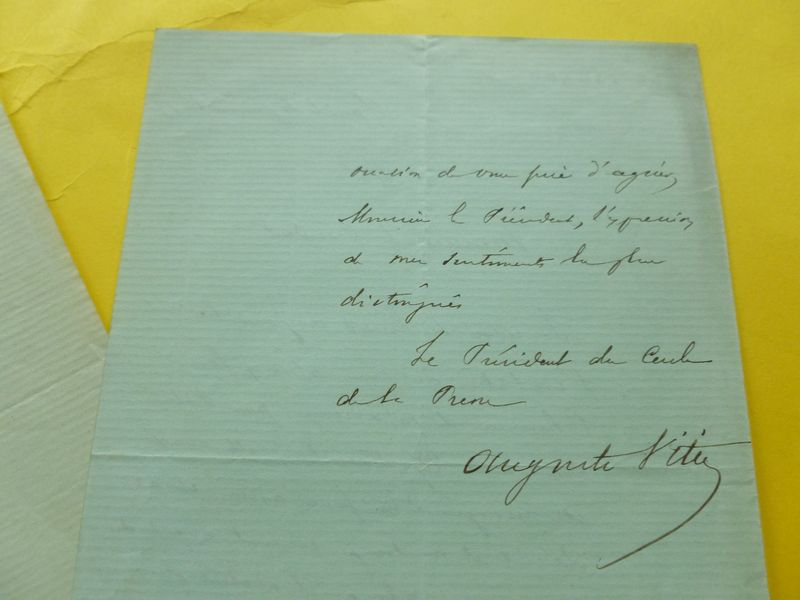 occasion de vous prier d'agréer,
Monsieur le Président, l'expression
de mes sentiments les plus
distingués
Le Président du Cercle
de la Presse
Auguste Vitu